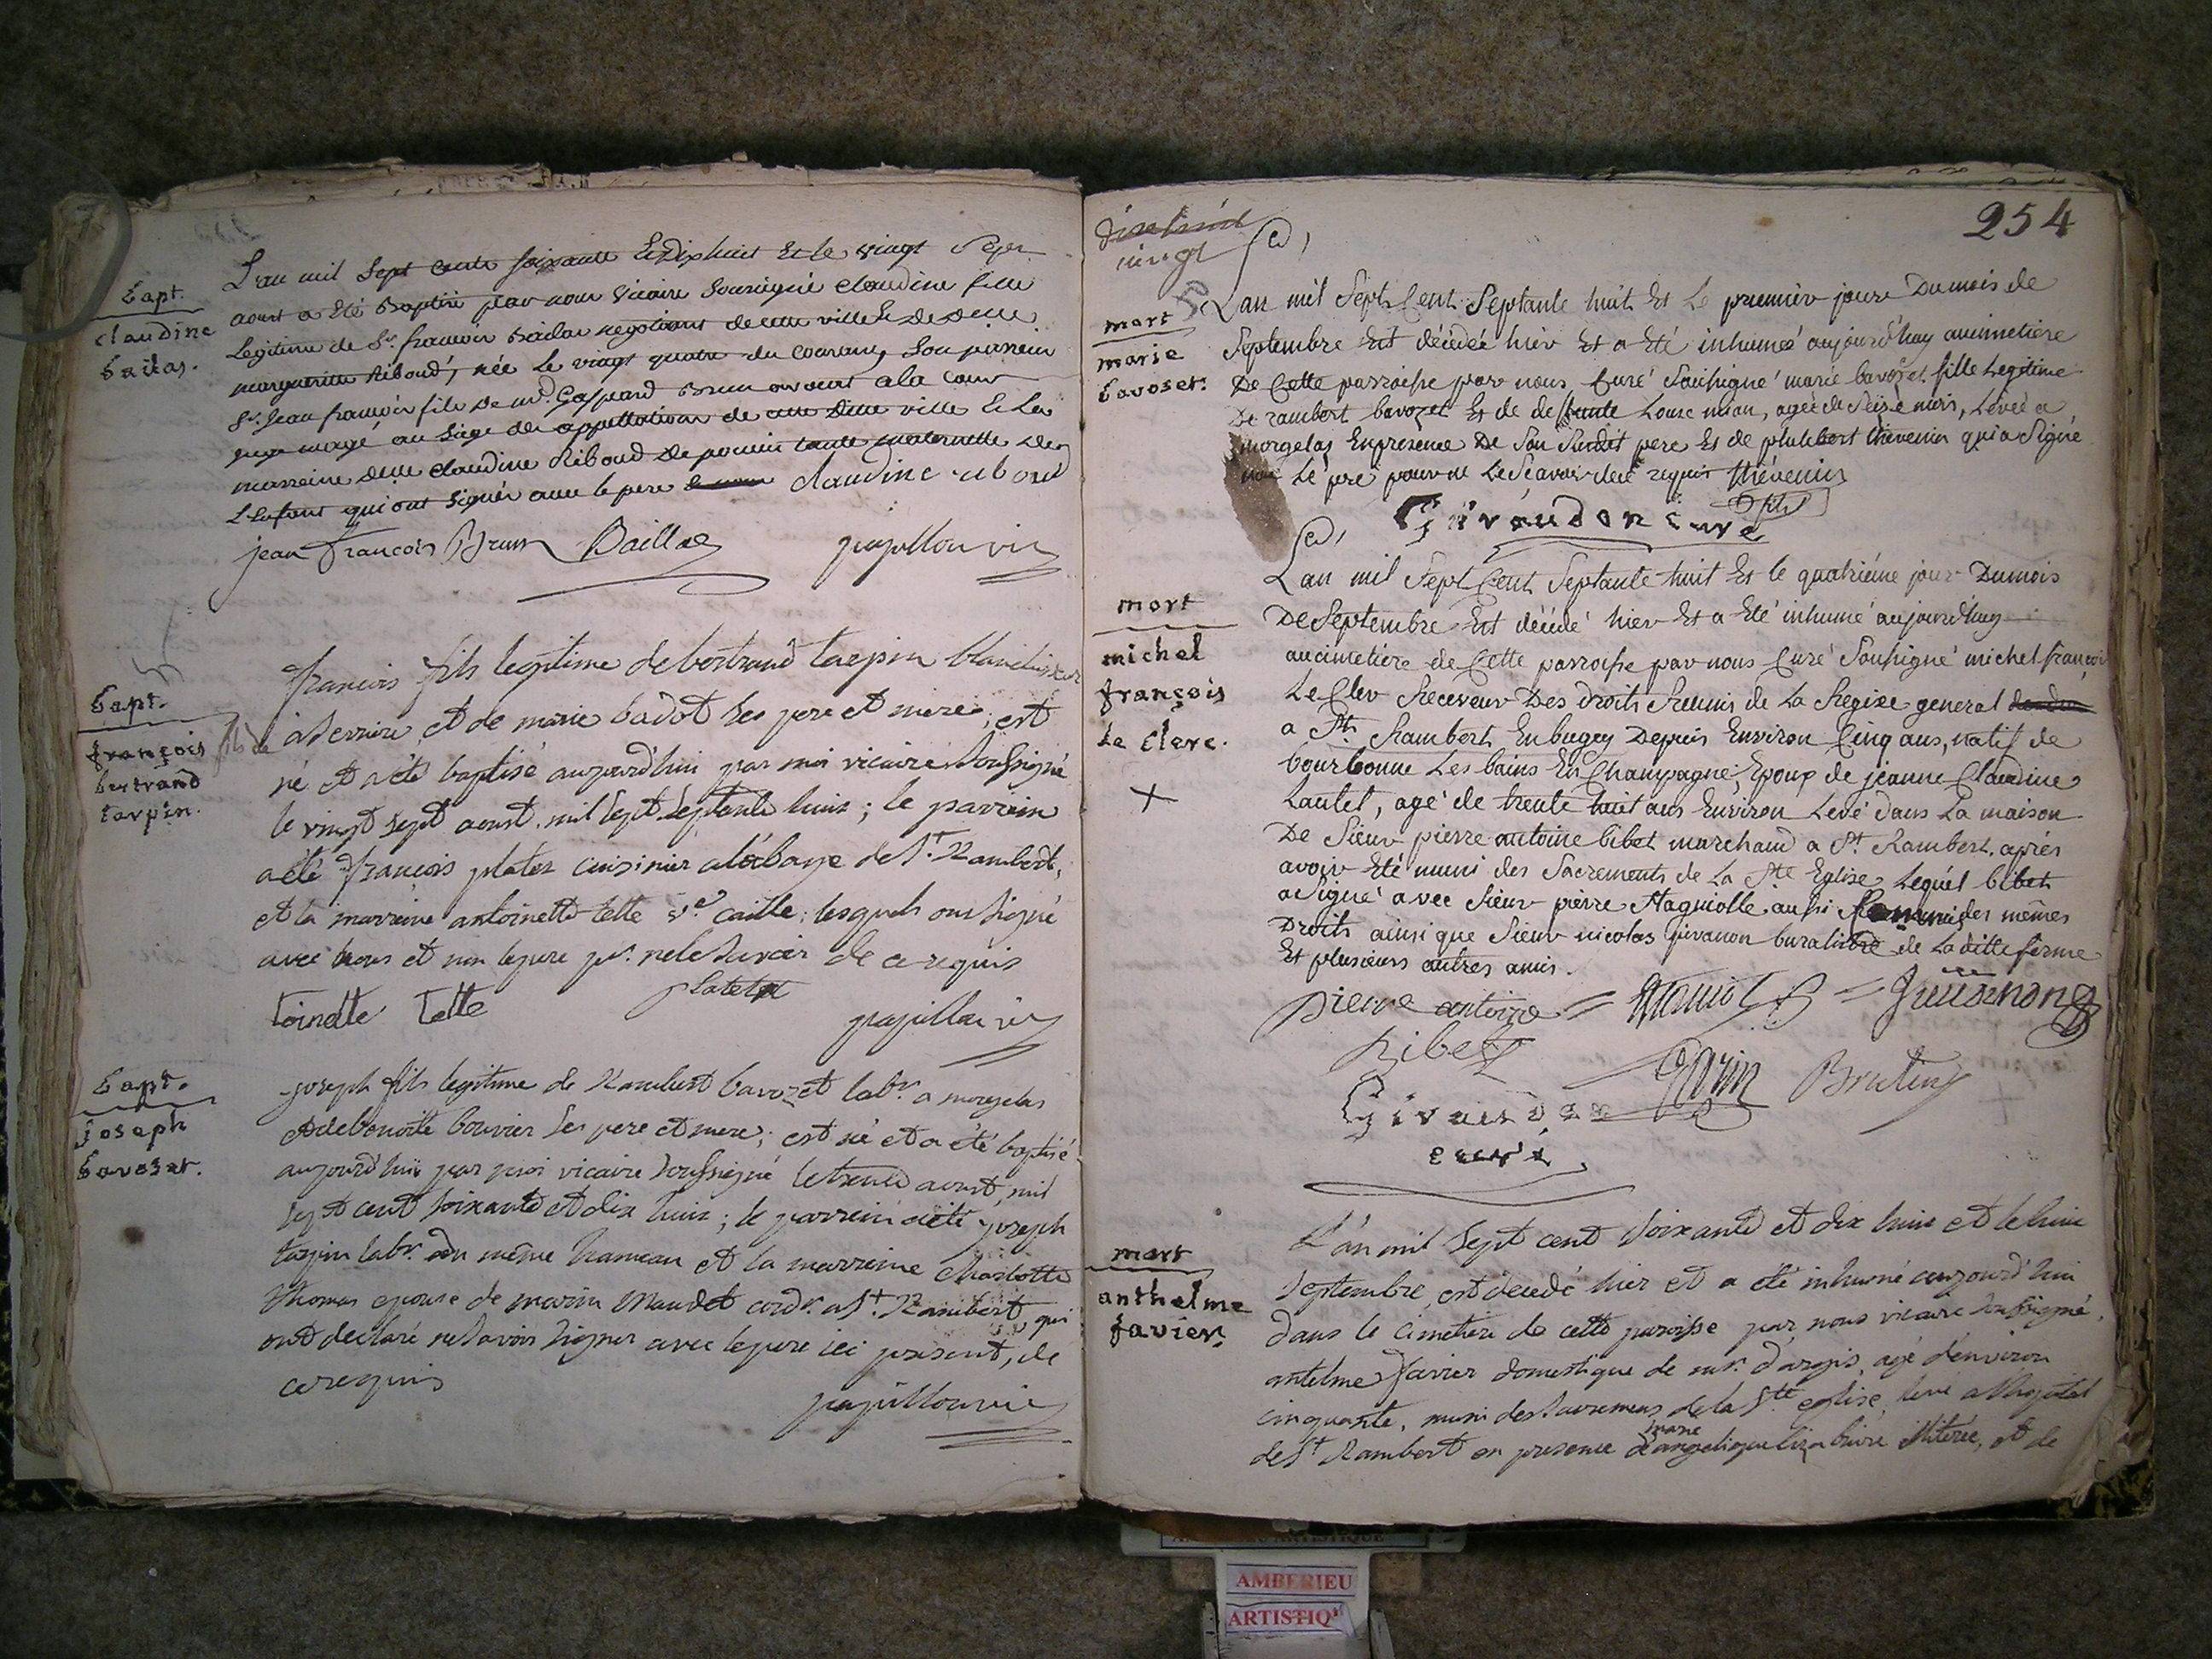 Bapt.
claudine
Bailas.
L'an mil Sept Cents soixante Et dix huit Et le vingt Sept
aoust a Eté Baptisé par nous Vicaire Soussigné claudine fille
Legitime de Sr. francois Bailas negotiant de cette ville Et de Delle
marguerite Riboud, née Le vingt quatre du Courant, Son parrein
Sr. Jean francois fils de mr. Gaspard Brun avocat a la cour
juge mage au Siege des appellations de cette Ditte ville Et La
marreine Delle claudine Riboud De tante maternelle De
L'Enfant qui ont Signés avec le pere claudine riboud
jean françois Brun Baillas papillon vic
Bapt.
françois fils de
bertrand
tarpin.
francois fils legitime de bertrand tarpin blanchisseur
à Serriere et de marie badot ses pere et mere; est
né et a été baptisé aujourd'hui par moi vicaire soussigné
le vingt sept aoust mil sept septante huit; le parrein
a été francois platet cuisinier a l'abaye de St. Rambert,
et la marreine antoinette tette ve. caille; lesquels ont signé
avec nous et non le pere pr. ne le savoir de ce requis
toinette tette platet papillon vic
Bapt.
joseph
Bavoset.
joseph fils legitime de Rambert bavozet labr. a morgelas
et de benoitte bouvier ses pere et mere; est né et a été baptisé
aujourd'hui par moi vicaire soussigné le trente aoust, mil
sept cent soixante et dix huit; le parrein a été joseph
tarpin labr. du même hameau et la marreine charlotte
thomas epouse de marin Maudet cordr. a St. Rambert, qui
ont declaré ne savoir signer avec le pere ici present, de
ce requis
papillon vic
254
vingt
mort
marie
Bavoset.
L'an mil Sept Cent Septante huit Et Le premier jour Du mois de
Septembre Est décédée hier Et a Eté inhumée aujourd'huy au cimetiere
De Cette parroisse par nous Curé Soussigné marie bavozet fille Legitime
De rambert bavozet Et de deffunte Louise , agée de Seize mois, Levée a
morgelas En presence De Son Susdit pere Et de philibert thévenin qui a Signé
non Le pere pour ne Le Scavoir de ce requis thévenin
fils
Giraudon curé
mort
michel
françois
Le clerc.
L'an mil Sept Cent Septante huit Et le quatrième jour Du mois
De Septembre Est décédé hier Et a Eté inhumé aujourd'huy
au cimetière de Cette parroisse par nous Curé Soussigné michel françois
Le Clerc Receveur Des droits Reunis de La Regise general
a St. Rambert En bugey Depuis Environ Cinq ans, natif de
bourbonne Les bains En Champagne, Epoux de jeanne Claudine
Lautet, agé de trente huit ans Environ Levé dans La maison
De Sieur pierre antoine bibet marchand a St. Rambert, après
avoir Eté muni des Sacrements de La Ste. Eglise, Lequel bibet
a Signé avec Sieur pierre aussi des mêmes
Droits ainsi que Sieur nicolas buraliste de La ditte ferme
Et plusieurs autres amis.
pierre antoine
Bibet
Garin
Giraudon
curé
mort
anthelme
favier.
L'an mil sept cent soixante et dix huit et le huit
septembre, est décédé hier et a été inhumé aujourd'hui
dans le cimetiere de cette paroisse par nous vicaire soussigné,
antelme favier domestique de mr. d'argis, agé d'environ
cinquante, muni des sacremens de la Ste eglise, levé a l'hopital
de St. Rambert en presence de marie angelique illiterée, et de
AMBERIEU
ARTISTIQ